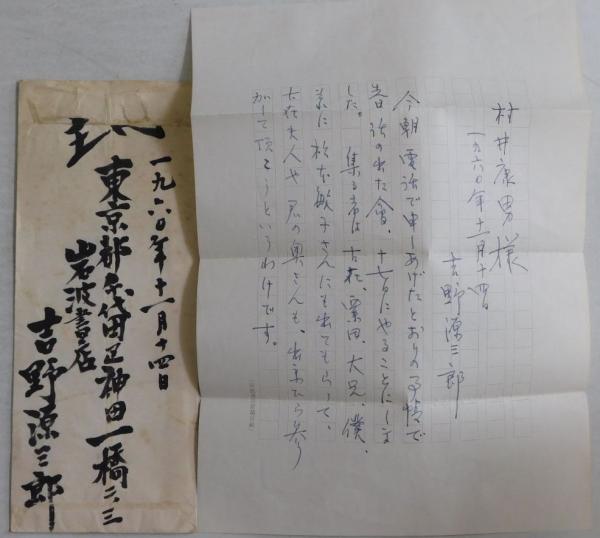 一九六〇年十一月十四日
東京都千代田区神田一橋二ノ三
岩波書店
吉野源三郎
村井康男様
一九六〇年十一月十四日
吉野源三郎
今朝電話で申しあげたとおりの事情で
昔話の出た会、十七日にやることにしま
した。集る者は古在、粟田、大兄、僕、
其に松本敏子さんにも出てもらって、
古在夫人や君の奥さんも、出来たら参
加して頂こうというわけです。